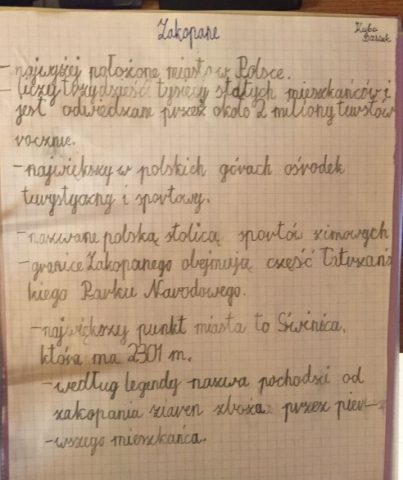 Zakopane
Kuba
- najwyżej położone miasto w Polsce.
- Liczy trzydzieści tysięcy stałych mieszkańców i
jest odwiedzane przez około 2 miliony turystów
rocznie.
- największy w polskich górach ośrodek
turystyczny i sportowy.
- nazywane polską stolicą sportów zimowych
- granice Zakopanego obejmują część Tatrzańs
kiego Parku Narodowego.
- największy punkt miasta to Świnica,
która ma 2301 m.
- według legendy nazwa pochodzi od
zakopania ziaren zboża przez pier-
-wszego mieszkańca.